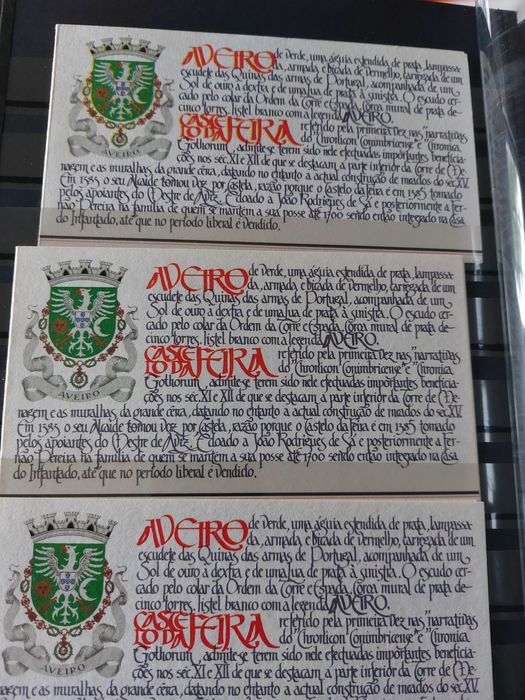 AVEIRO de verde, uma águia estendida de prata, lampassa-
da, armada e bicada de vermelho, carregada de um
escudete das Quinas das armas de Portugal, acompanhada de um
Sol de ouro à dextra e de uma lua de prata à sinistra. O escudo cer-
cado pelo colar da Ordem da Torre e Espada. Coroa mural de prata de
cinco torres, listel branco com a legenda AVEIRO.
CASTE
LO DA FEIRA referido pela primeira vez nas "narrativas
do "Chronicon Conimbricense" e "Cronica
Gothorum", admite-se terem sido nele efectuadas importantes beneficia-
ções nos séc. XI e XII de que se destacam a parte inferior da Torre de Me-
nagem e as muralhas da grande cêrca, datando no entanto a actual construção de miados do séc. XV.
Em 1385 o seu Alcaide tomou voz por Castela, razão porque o castelo da feira é em 1385 tomado
pelos apoiantes do Mestre de Aviz. É doado a João Rodrigues de Sá e posteriormente a Fer-
não Pereira na família de quem se mantem a sua posse até 1700 sendo então integrado na Casa
do Infantado, até que no período liberal é vendido.
AVEIRO
AVEIRO de verde, uma águia estendida de prata, lampassa-
da, armada e bicada de vermelho, carregada de um
escudete das Quinas das armas de Portugal, acompanhada de um
Sol de ouro à dextra e de uma lua de prata à sinistra. O escudo cer-
cado pelo colar da Ordem da Torre e Espada. Coroa mural de prata de
cinco torres, listel branco com a legenda AVEIRO.
CASTE
LO DA FEIRA referido pela primeira vez nas "narrativas
do "Chronicon Conimbricense" e "Cronica
Gothorum", admite-se terem sido nele efectuadas importantes beneficia-
ções nos séc. XI e XII de que se destacam a parte inferior da Torre de Me-
nagem e as muralhas da grande cêrca, datando no entanto a actual construção de miados do séc. XV.
Em 1385 o seu Alcaide tomou voz por Castela, razão porque o castelo da feira é em 1385 tomado
pelos apoiantes do Mestre de Aviz. É doado a João Rodrigues de Sá e posteriormente a Fer-
não Pereira na família de quem se mantem a sua posse até 1700 sendo então integrado na Casa
do Infantado, até que no período liberal é vendido.
AVEIRO
AVEIRO de verde, uma águia estendida de prata, lampassa-
da, armada e bicada de vermelho, carregada de um
escudete das Quinas das armas de Portugal, acompanhada de um
Sol de ouro à dextra e de uma lua de prata à sinistra. O escudo cer-
cado pelo colar da Ordem da Torre e Espada. Coroa mural de prata de
cinco torres, listel branco com a legenda AVEIRO.
CASTE
LO DA FEIRA referido pela primeira vez nas "narrativas
do "Chronicon Conimbricense" e "Cronica
Gothorum", admite-se terem sido nele efectuadas importantes beneficia-
ções nos séc. XI e XII de que se destacam a parte inferior da Torre de Me-
nagem e as muralhas da grande cêrca, datando no entanto a actual construção de miados do séc. XV.
AVEIRO